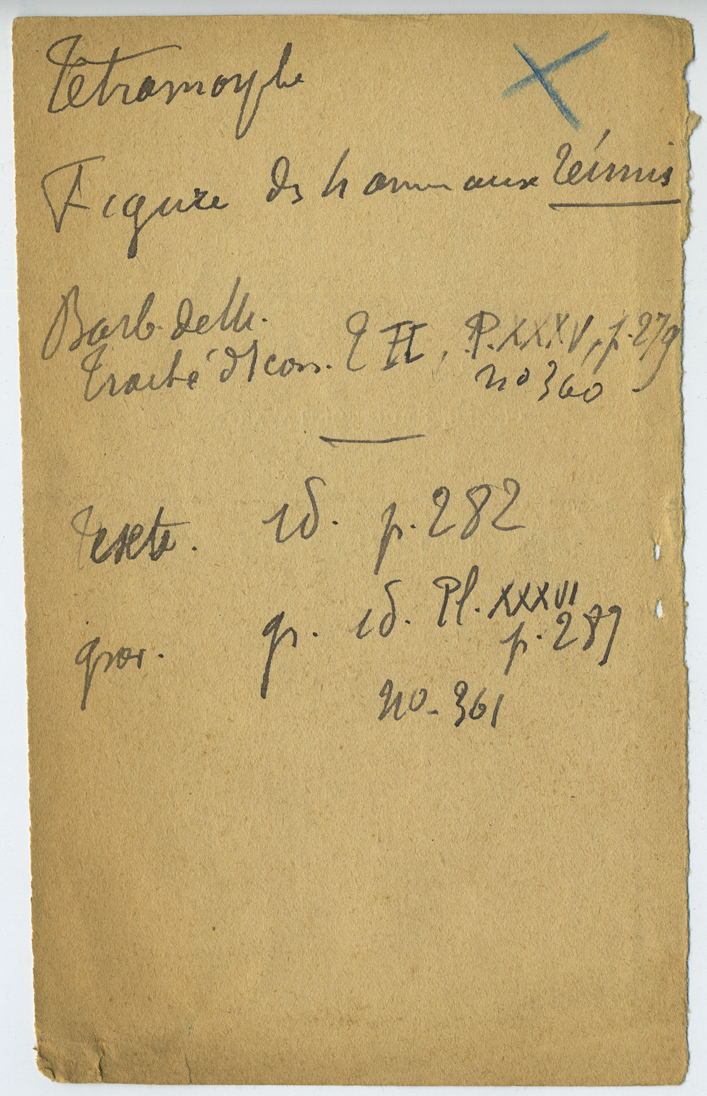 Tétramorphe
Figure ds h animaux réunis
Barb. de M.
Traité d'Icon. T II, P. XXXV, p. 279
no 360
texte. id. p. 282
grav. gr. id. Pl. XXXVI
p. 287
no. 361